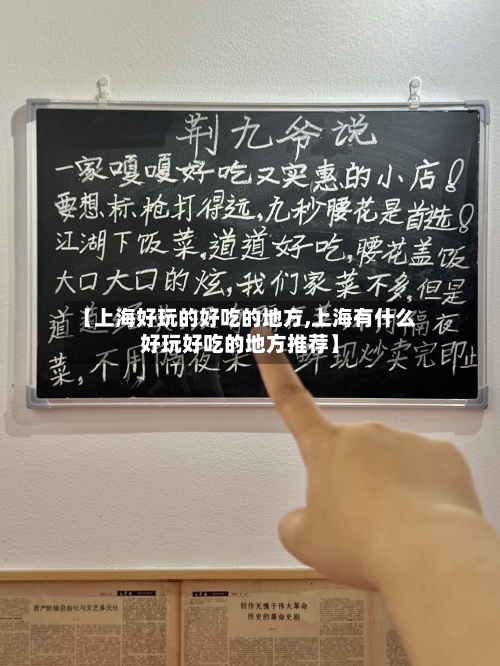 荆九爷说
一家嘎嘎好吃又实惠的小店!
要想标枪打得远,九秒腰花是首选!
江湖下饭菜,道道好吃,腰花盖饭
大口大口的炫,我们家菜不多,但是
【上海好玩的好吃的地方,上海有什么
好玩好吃的地方推荐】
道道 隔夜
菜,不用隔夜 鲜现炒卖完即止
资产阶级自由化与文艺多元化
创作无愧于伟大革命
历史的革命史剧